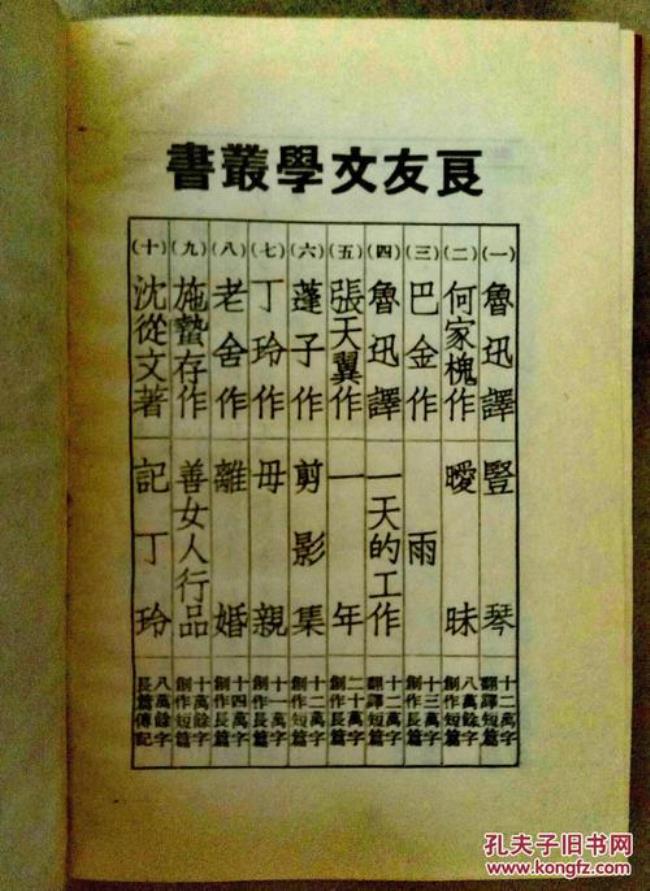 良友文學叢書
(一) 魯迅譯 豎琴 十二萬字 翻譯短篇
(二) 何家槐作 曖昧 八萬餘字 創作短篇
(三) 巴金作 雨 十三萬字 創作長篇
(四) 魯迅譯 一天的工作 十二萬字 翻譯短篇
(五) 張天翼作 一年 二十萬字 創作長篇
(六) 蓬子作 剪影集 十二萬字 創作短篇
(七) 丁玲作 母親 十一萬字 創作長篇
(八) 老舍作 離婚 十四萬字 創作長篇
(九) 施蟄存作 善女人行品 十萬餘字 創作短篇
(十) 沈從文著 記丁玲 八萬餘字 長篇傳記
孔夫子旧书网
www.kongfz.com